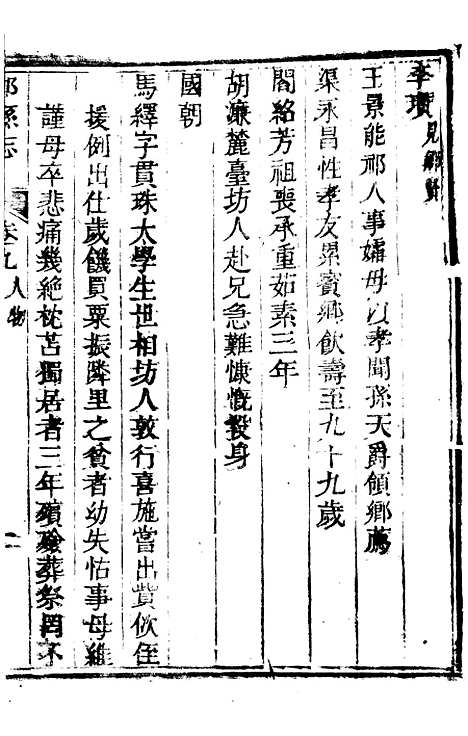 李瓚見鄉賢
王景能祁人事孀母以孝聞孫天爵領鄉薦
渠永昌性孝友累賓鄉飲壽至九十九歲
閻絡芳祖喪承重茹素三年
胡濂麓臺坊人赴兄急難慷慨殺身
國朝
馬繹字貫珠太學生世相坊人敦行喜施嘗出貲佽侄
援例出仕歲饑買粟振隣里之貧者幼失怙事母維
謹母卒悲痛幾絕枕苫獨居者三年殯殮葬祭罔不
祁縣志 卷九人物